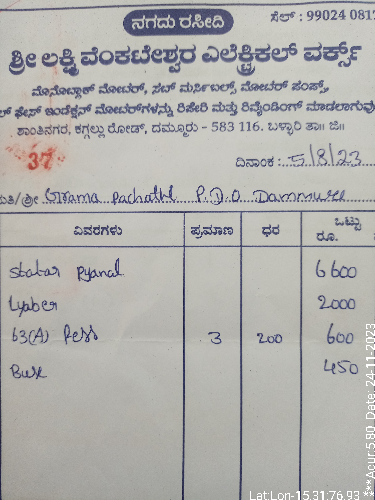 ನಗದು ರಸೀದಿ
ಸೆಲ್ : 99024 0817
ಶ್ರೀ ಲಕ್ಷ್ಮಿ ವೆಂಕಟೇಶ್ವರ ಎಲೆಕ್ಟ್ರಿಕಲ್ ವರ್ಕ್ಸ್
ಮೊನೊಬ್ಲಾಕ್ ಮೋಟರ್, ಸಬ್ ಮರ್ಸಿಬಲ್ಸ್ ಮೋಟರ್ ಪಂಪ್ಸ್,
ಲ್ ಫೇಸ್ ಇಂಡೆಕ್ಷನ್ ಮೋಟರ್‌ಗಳನ್ನು ರಿಪೇರಿ ಮತ್ತು ರಿವೈಂಡಿಂಗ್ ಮಾಡಲಾಗುವು
ಶಾಂತಿನಗರ, ಕಗ್ಗಲ್ಲು ರೋಡ್, ದಮ್ಮೂರು - 583 116. ಬಳ್ಳಾರಿ ತಾ॥ ಜಿ॥
37 ದಿನಾಂಕ : 5/8/23
ಮತಿ/ಶ್ರೀ Grama Pachathi P.D.O Dammuree
ವಿವರಗಳು ಪ್ರಮಾಣ ಧರ ಒಟ್ಟು ರೂ.
Statar Pyanal 6600
Lyaber 2000
63(A) Fess 3 200 600
Buse 450
Lat:Lon-15.31:76.93 ***Acur:5.80 Date: 24-11-2023